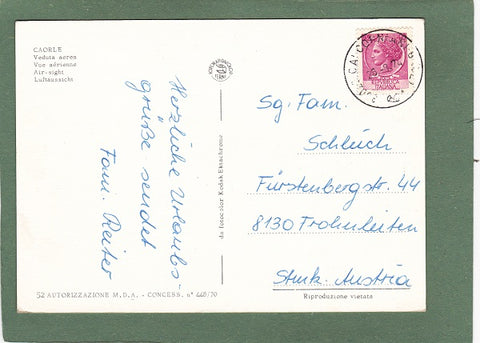 CAORLE
Veduta aerea
Vue aérienne
Air-sight
Luftansicht
Herzliche Urlaubs-
grüße sendet
Fam. Reiter
da fotocolor Kodak Ektachrome
Sg. Fam.
Schleich
Fürstenbergstr. 44
8130 Frohnleiten
Stmk. Austria
52 AUTORIZZAZIONE M.D.A. - CONCESS. n° 448/70
Riproduzione vietata